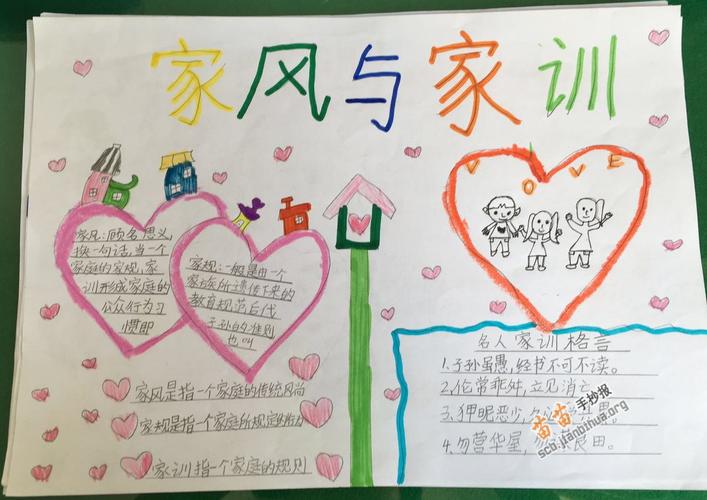 家风与家训
VOVE
家风:顾名思义,
换一句话,当一个
家庭的家规,家
训形成家庭的
公众行为习
惯即
家规:一般是由一个
家族所遗传下来的
教育规范后代
子孙的准则
也叫
家风是指一个家庭的传统风尚
家规是指一个家庭所规定的行为
家训指一个家庭的规则
名人家训格言
1.子孙虽愚,经书不可不读。
2.伦常乖舛,立见消亡
3.狎昵恶少,久必
4.勿营华屋,勿谋良田。
苗苗手抄报
scb.jianbihua.org